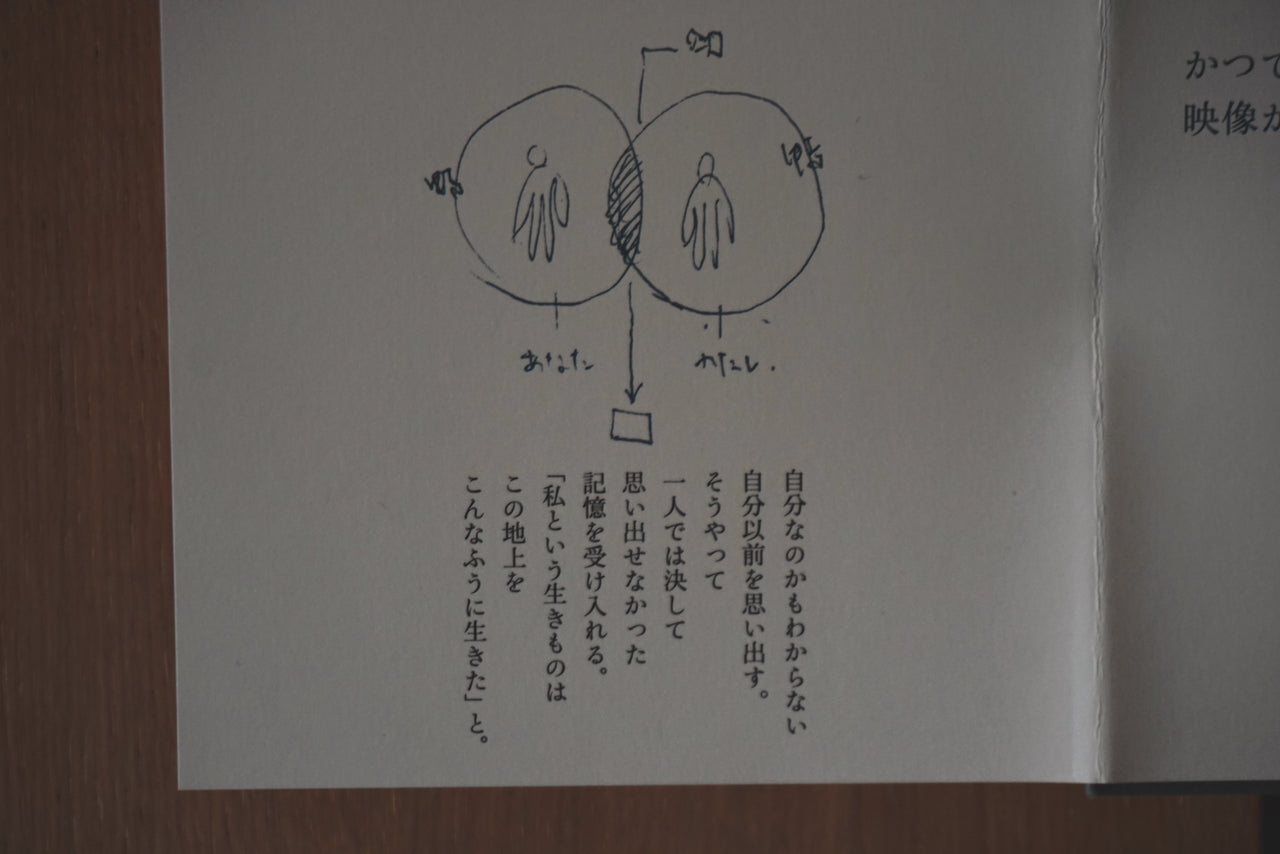 あなた
わたし.
自分なのかもわからない
自分以前を思い出す。
そうやって
一人では決して
思い出せなかった
記憶を受け入れる。
「私という生きものは
この地上を
こんなふうに生きた」と。
かつて
映像が